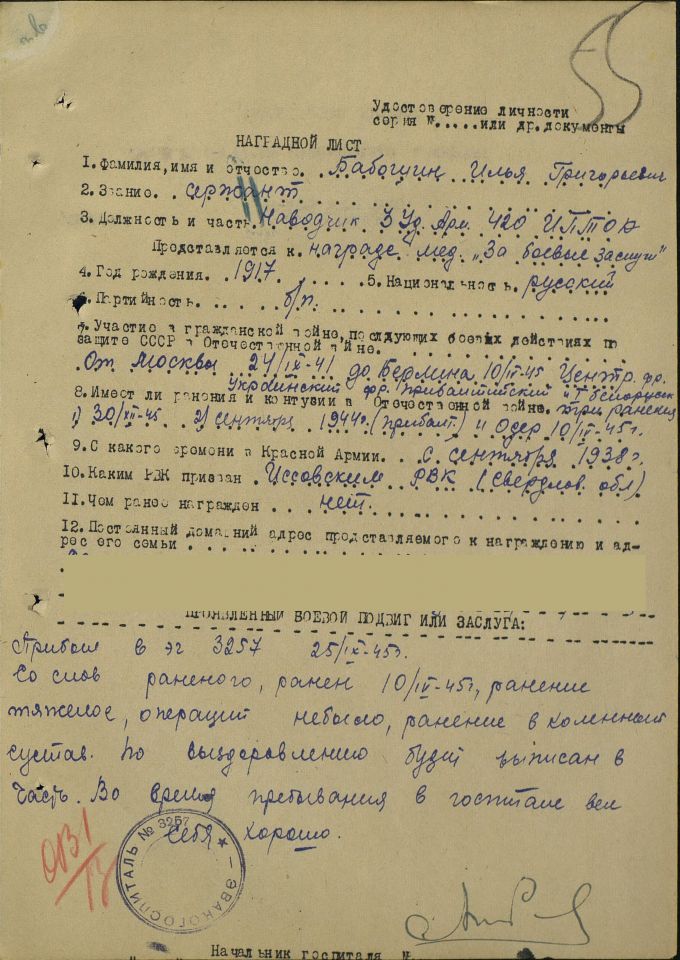 55
Удостоверение личности
серия №.....или др.документы
НАГРАДНОЙ ЛИСТ
1.Фамилия,имя и отчество. Бабогшин Илья Григорьевич
2.Звание. Сержант
3.Должность и часть Наводчик 3 Уд. Арм. 420 ИПТОП
Представляется к. награде мед. „За боевые заслуги"
4.Год рождения. 1917 5.Национальность. русский
6.Партийность. б/п.
7.Участие в гражданской войне,последующих боевых действиях по
защите СССР в Отечественной войне.
От Москвы 24/IX-41 до Берлина 10/IV-45 Центр. фр.
Украинский фр. Прибалтийский и I Белорусск
8.Имеет ли ранения и контузии в Отечественной войне. три ранения
1) 30/XII-45 2) сентябрь 1944г. (Прибалт.) и Одер 10/IV-45г.
9.С какого времени в Красной Армии. С сентября 1938г.
10.Каким РВК призван Иссовским РВК (Свердлов. обл)
11.Чем ранее награжден нет.
12.Постоянный домашний адрес представляемого к награждению и ад-
рес его семьи
ПРОЯВЛЕННЫЙ БОЕВОЙ ПОДВИГ ИЛИ ЗАСЛУГА:
Прибыл в эг 3257 25/IX-45г.
Со слов раненого, ранен 10/IV-45г, ранение
тяжелое, операций небыло, ранение в коленный
сустав. По выздоровлению будет выписан в
часть. Во время пребывания в госпитале вел
себя хорошо.
ЭВАКОГОСПИТАЛЬ № 3257
Начальник госпиталя №